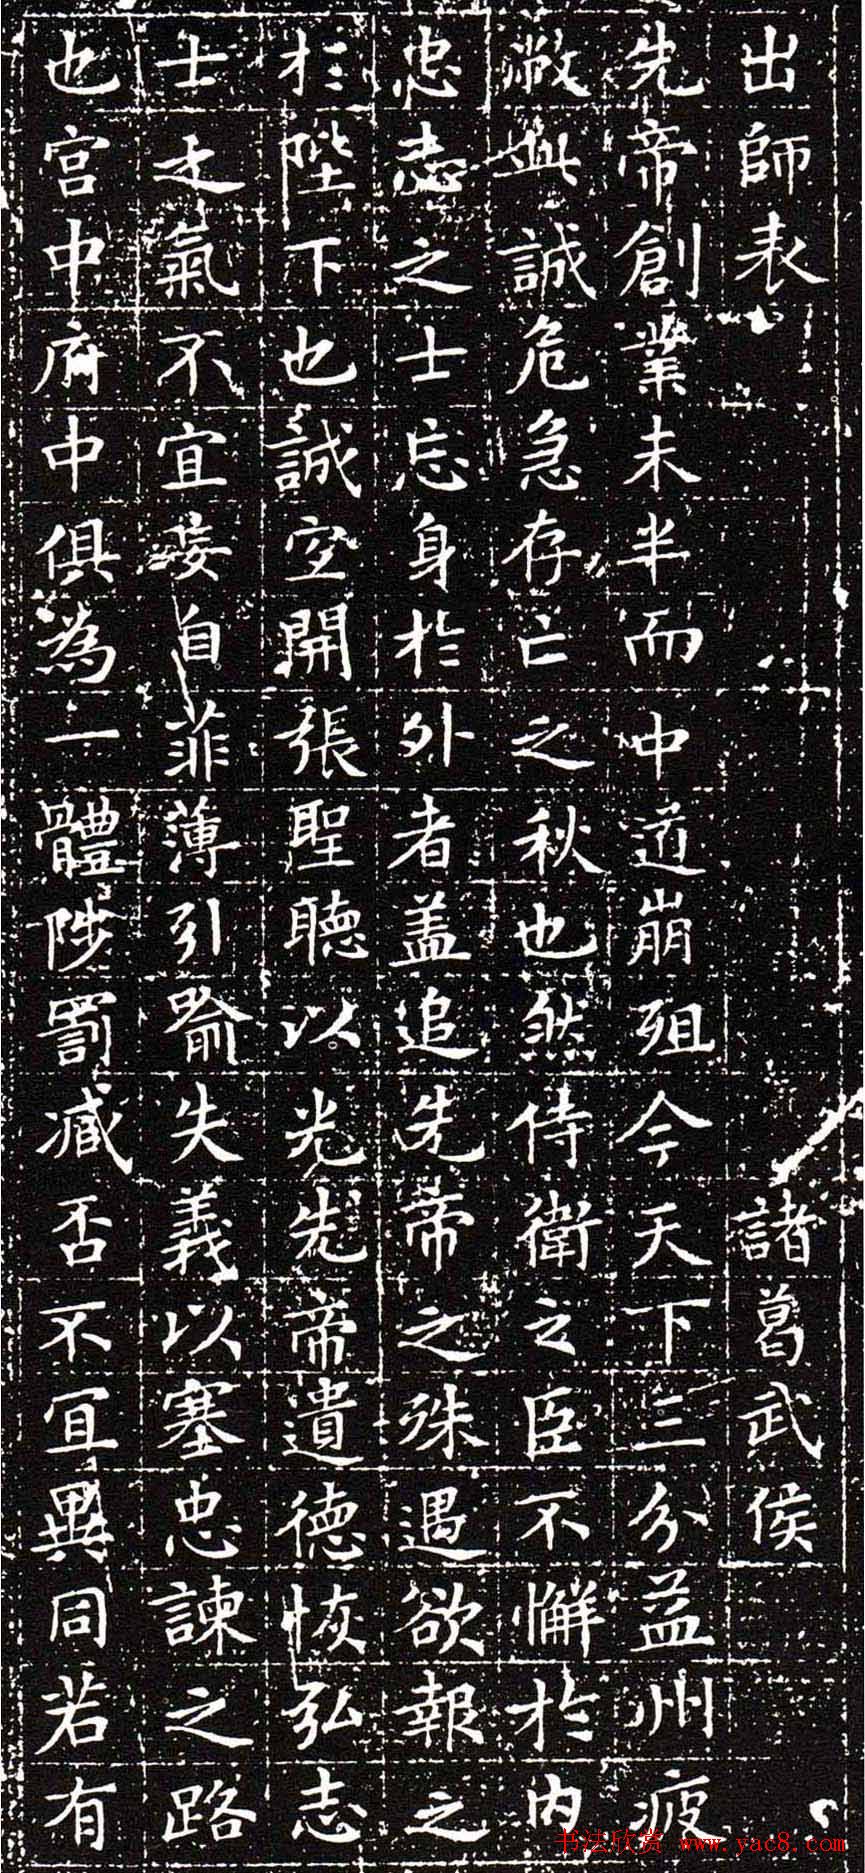 出師表 諸葛武侯
先帝創業未半而中道崩殂今天下三分益州疲
敝此誠危急存亡之秋也然侍衛之臣不懈於內
忠志之士忘身於外者盖追先帝之殊遇欲報之
於陛下也誠空開張聖聽以光先帝遺德恢弘志
士之氣不宜妄自菲薄引喻失義以塞忠諫之路
也宮中府中俱為一體陟罰臧否不宜異同若有
书法欣赏 www.yac8.com